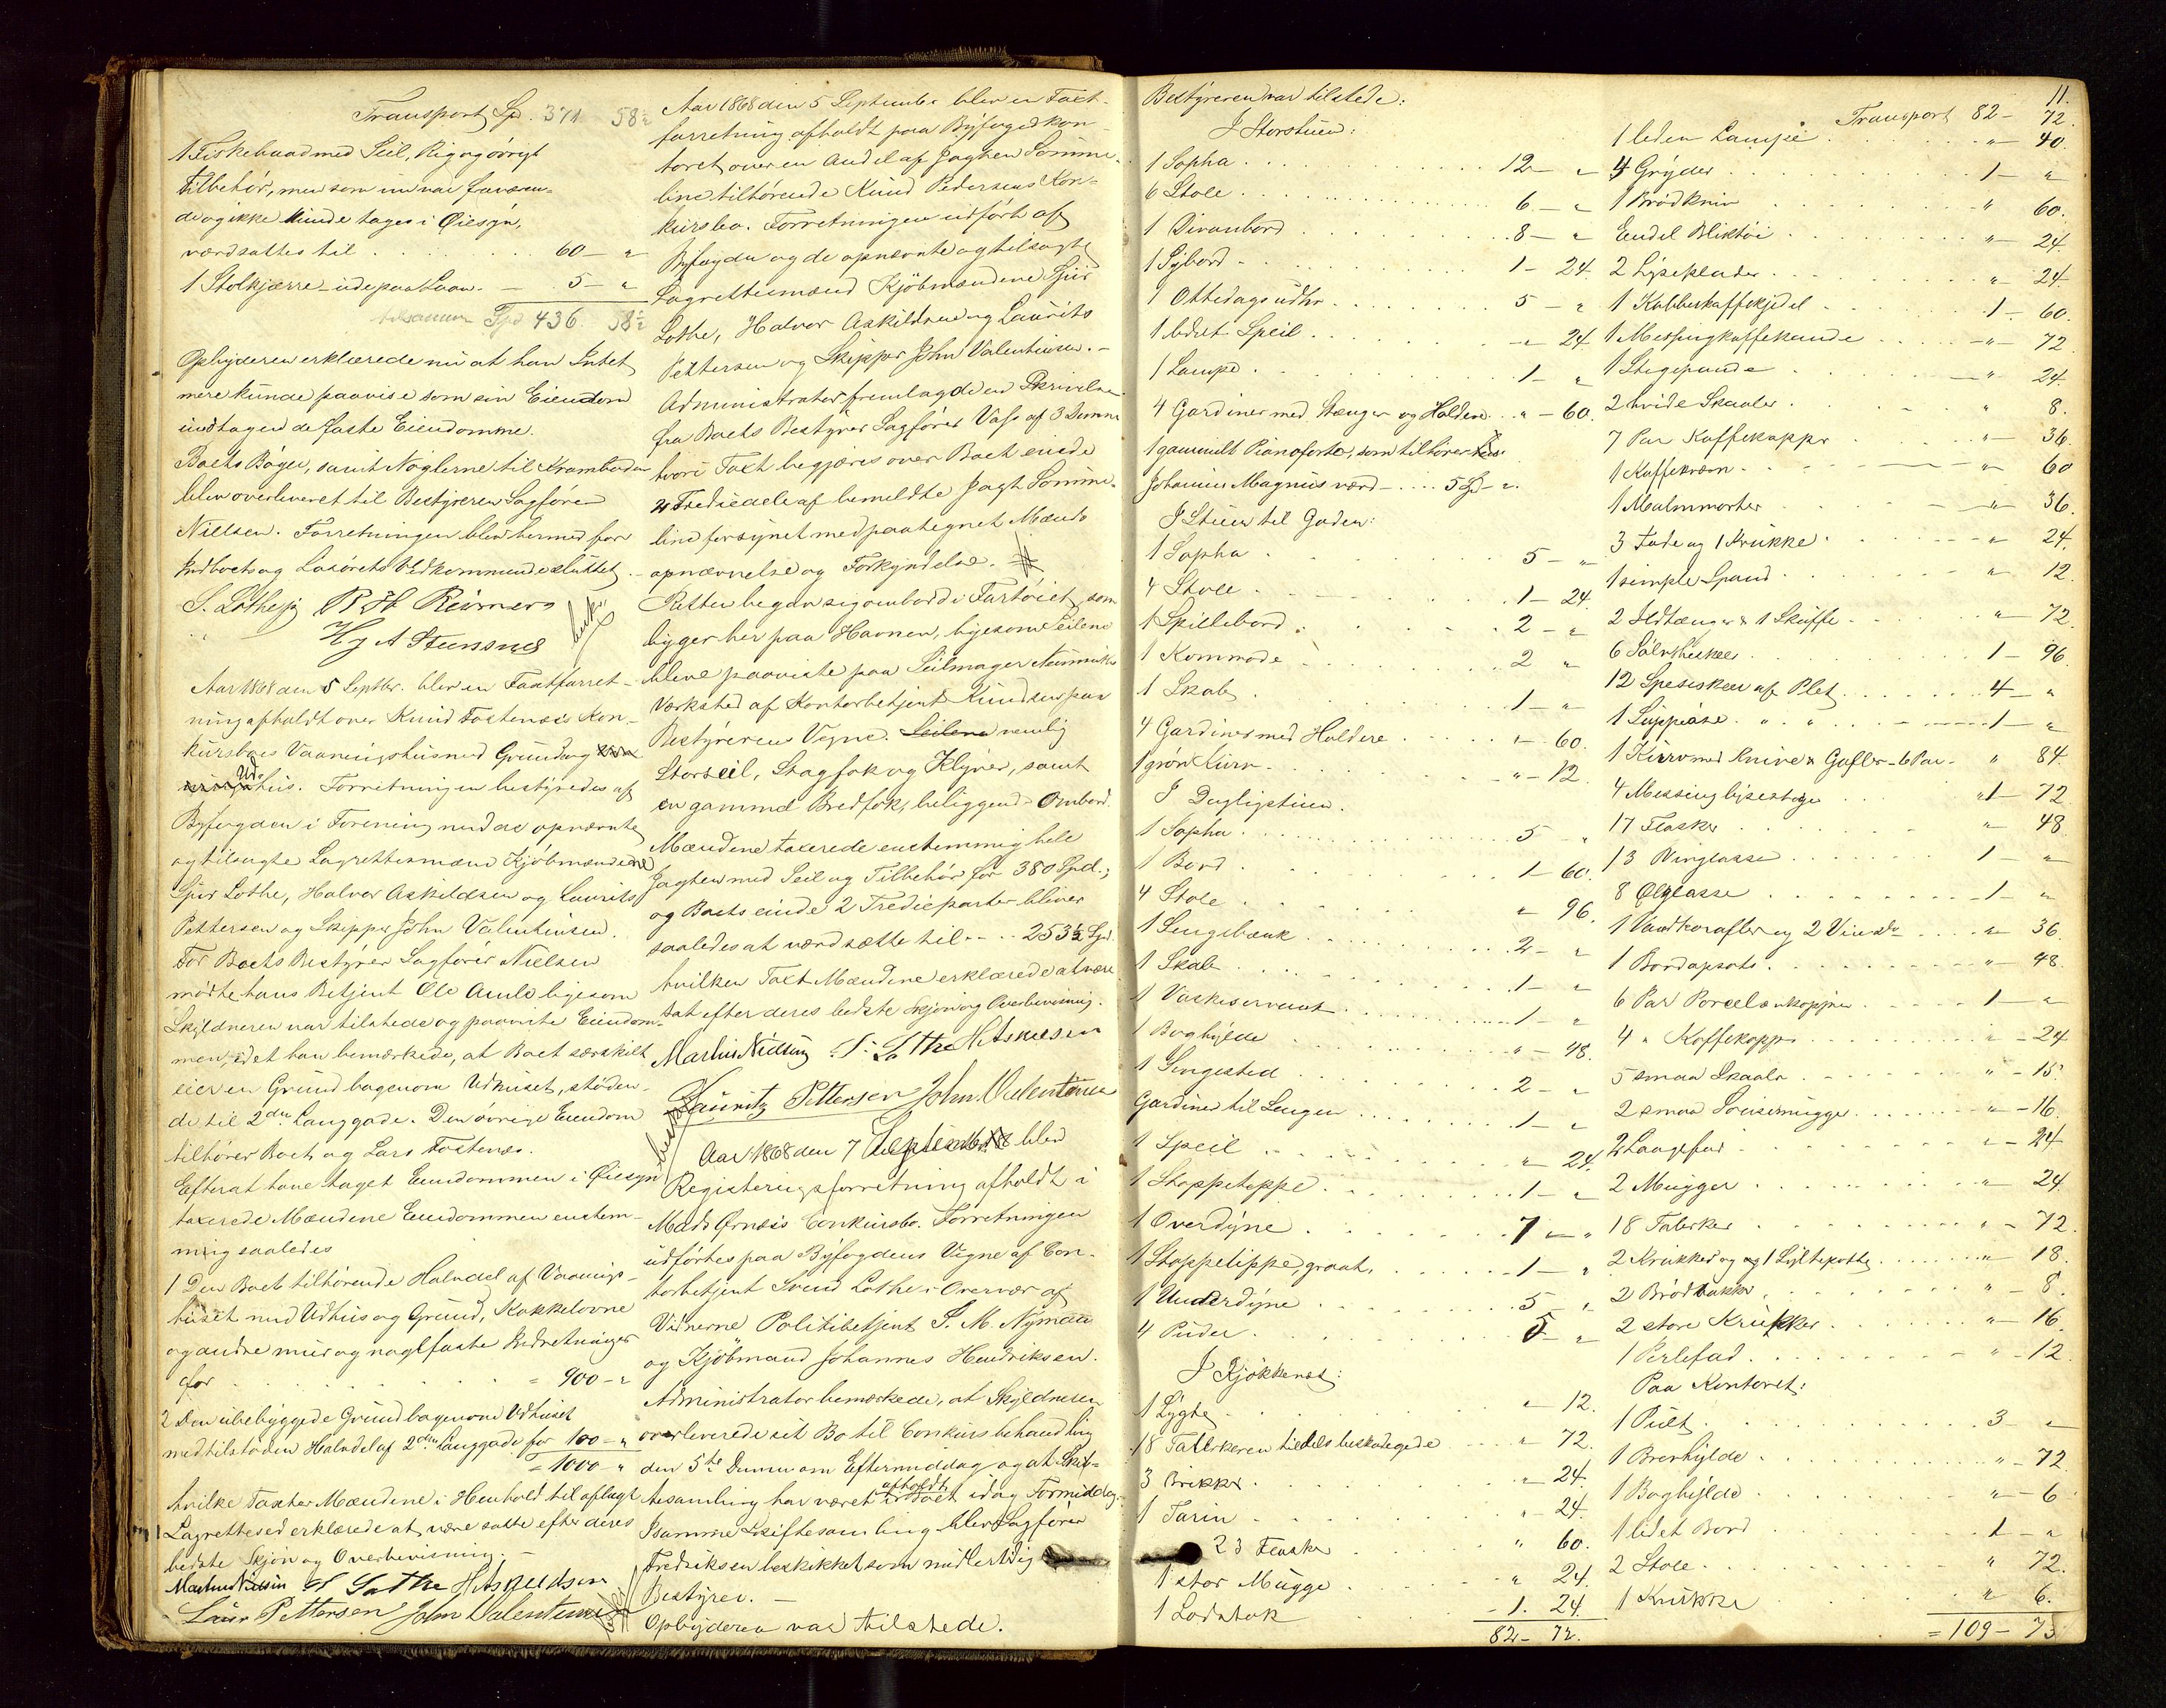 Transport Spd. 371 58½
1 Fiskebaad med Seil, Rig og övrigt
Tilbehör, men som nu var fraværen-
de og ikke kunde tages i Öiesyn,
værdsattes til . . . . . 60 — "
1 Stolkjærre — ude paa Laan. — 5 — "
tilsammen Spd 436. 58½
Opbyderen erklærede nu at han Intet
mere kunde paavise som sin Eiendom
undtagen de faste Eiendomme.
Boets Böger, samt Nöglerne til Kramboden
blev overleveret til Bestyreren Sagförer
Nielsen. Forretningen blev hermed for
Indboets og Lösörets Vedkommende sluttet.
S. Lothe R. H. Reimers
Aar 1868 den 5 Septbr. blev en Taxtforret-
ning afholdt over Knud Tostensös Kon-
kursboes Vaaningshus med Grund og
Udhus. Forretningen bestyredes af
Byfogden i Forening med de opnævnte
og tilsagte Lagrettesmænd Kjöbmændene
Sjur Lothe, Halvor Askildsen og Laurits
Pettersen og Skipper John Valentinsen.
For Boets Bestyrer Sagförer Nielsen
mödte hans Betjent Ole Amlo ligesom
Skyldneren var tilstede og paaviste Eiendom-
men, idet han bemærkede, at Boet særskilt
eier en Grund bagenom Udhuset, stöden-
de til 2den Langgade. Den övrige Eiendom
tilhörer Boet og Lars Tostensö.
Efterat have taget Eiendommen i Öiesyn
taxerede Mændene Eiendommen enstem-
mig saaledes
1 Den Boet tilhörende Halvdel af Vaanings-
huset med Udhus og Grund, Kakkelovne
og andre mur og naglfaste Indretninger
for . . . . . = 900 — "
2 Den ubebyggede Grund bagenom Udhuset
med tilstöden Halvdel af 2den Langgade for 100 — "
= 1000 "
hvilke Taxter Mændene i Henhold til aflagt
Lagrettesed erklærede at være satte efter deres
bedste Skjön og Overbevisning. —
Martin Nielsen S Lothe H Askildsen
Laur Pettersen John Valentinsen
Aar 1868 den 5 September blev en Taxt-
forretning afholdt paa Byfogedkon-
toret over en Andel af Jagten Lömme-
line tilhörende Knud Pedersens Kon-
kursbo. Forretningen udfört af
Byfogden og de opnævnte og tilsagte
Lagrettesmænd Kjöbmændene Sjur
Lothe, Halvor Askildsen og Laurits
Pettersen og Skipper John Valentinsen. —
Administrator fremlagde en Skrivelse
fra Boets Bestyrer Sagförer Vass af 3 Dennes
hvori Taxt begjæres over Boet eiende
2 Trediedele af bemeldte Jagt Lömme-
line forsynet med paategnet Mænds
opnævnelse og Forkyndelse. #
Retten begav sig ombord i Fartöiet, som
ligger her paa Havnen, ligesom Seilene
bleve paaviste paa Seilmager
Værksted af Kontorbetjent Knudsen paa
Bestyrerens Vegne. Seilene nemlig
Storseil, Stagfok og Klyver, samt
en gammel Bredfok, beliggende Ombord.
Mændene taxerede enstemmig hele
Jagten med Seil og Tilbehör for 380 Spd.,
og Boets eiende 2 Trediéparter bliver
saaledes at værdsætte til . . . 253⅓ Spd.
hvilken Taxt Mændene erklærede at være
sat efter deres bedste Skjön og Overbevisning.
Martin Nielsen S. Lothe H Askildsen
Lauritz Pettersen John Valentinsen
Aar 1868 den 7 September blev
Registeringsforretning afholdt i
Mads Örnæs's Conkursbo. Forretningen
udförtes paa Byfogdens Vegne af Con-
torbetjent Svend Lothe i Overvær af
Vidnerne Politibetjent S. M. Nyman
og Kjöbmand Johannes Hendriksen.
Administrator bemærkede, at Skyldneren
overleverede sit Bo til Conkursbehandling
den 5te Dennes om Eftermiddag og at Skif-
tesamling har været afholdt i Boet idag Formiddag.
I samme Skiftesamling blev Sagförer
Fredriksen beskikket som midlertidig
Bestyrer. —
Opbyderen var tilstede.
Bestyreren var tilstede:
I Storstuen:
1 Sopha . . . 12 — "
6 Stole . . . 6 — "
1 Divanbord . . . 8 — "
1 Sybord . . . 1 — 24.
1 Ottedagsudhr . . . 5 — "
1 lidet Speil . . . " 24
1 Lampe . . . 1 — "
4 Gardiner med Stænger og Holdere . " — 60.
1 gammelt Pianoforte, som tilhörer
Johannes Magnus værd . . . 5 Spd "
I Stuen til Gaden:
1 Sopha . . . 5 — "
4 Stole . . . 1 — 24.
1 Spillebord . . . 2 — "
1 Kommode . . . 2 "
1 Skab . . . 1 — "
4 Gardiner med Holdere . . . " — 60.
1 grön Kurv . . . " — 12.
I Dagligstuen.
1 Sopha . . . 5 — "
1 Bord . . . 1 — 60.
4 Stole . . . " 96.
1 Sengebænk . . . 2 — "
1 Skab . . . 1 — "
1 Vaskeservant . . . 1 — "
1 Boghylde . . . " — 48.
1 Sengested . . . 2 — "
Gardiner til Sengen . . . 1 — "
1 Speil . . . " 24.
1 Stoppeteppe . . . 1 — "
1 Overdyne . . . 7 — "
1 Stoppeteppe, graat . . . 1 — "
1 Underdyne . . . 5 — "
4 Puder . . . 5 — "
I Kjökkenet:
1 Lygte . . . " — 12.
18 Tallerkener tildels beskadigede . . . " 72.
3 Brikker . . . " 24.
1 Tarin . . . " 24.
23 Flasker . . . " 60.
1 stor Mugge . . . " 24.
1 Lodstok . . . 1. 24.
82 — 72.
11.
Transport 82 — 72.
1 liden Lampe . . . " — 40.
4 Gryder . . . 1 — "
1 Brödkniv . . . " 60.
Endel Bliktöi . . . " — 24.
2 Lyseplader . . . " — 24
1 Kobberkaffekjedel . . . 1 — 60.
1 Messingkaffekande . . . " — 72
1 Stegepande . . . " 24.
2 hvide Skaaler . . . " 8.
7 Par Kaffekopper . . . " — 36.
1 Kaffekværn . . . " 60
1 Malmmorter . . . " — 36.
3 Fade og 1 Krukke . . . " 24.
1 simple Spand . . . " 12.
2 Ildtænger & 1 Skuffe . . . " — 72.
6 Sölvtheskeer . . . 1 — 96.
12 Spiseskeer af Plet . . . 4 — "
1 Suppeöse " " . . . 1 — "
1 Kurv med Knive & Gafler — 6 Par . " 84.
4 Messinglysestager . . . 1 — 72
17 Flasker . . . " 48.
13 Vinglasse . . . 1 — "
8 Ölglasse . . . 1 — "
1 Vandkarafler og 2 Vin do . . . " 36.
1 Bordopsats . . . " — 48.
6 Par Porcelænkopper . . . 1 — "
4 " Kaffekopper . . . " — 24
5 smaa Skaaler . . . " — 15.
2 smaa Sausemugger . . . " — 16.
2 Laagefad . . . " — 24
2 Mugger . . . " 24.
18 Talerker . . . " — 72.
2 Krukker og 1 Syltepotte . . . " 18.
2 Brödbakker . . . " — 8.
2 store Krukker . . . " — 16.
1 Perlefad . . . " — 12.
Paa Kontoret:
1 Pult . . . 3 — "
1 Brevhylde . . . " — 72
1 Boghylde . . . " — 6
1 lidet Bord . . . 1 — "
2 Stole . . . " 72.
1 Krukke . . . " 6.
= 109 — 73